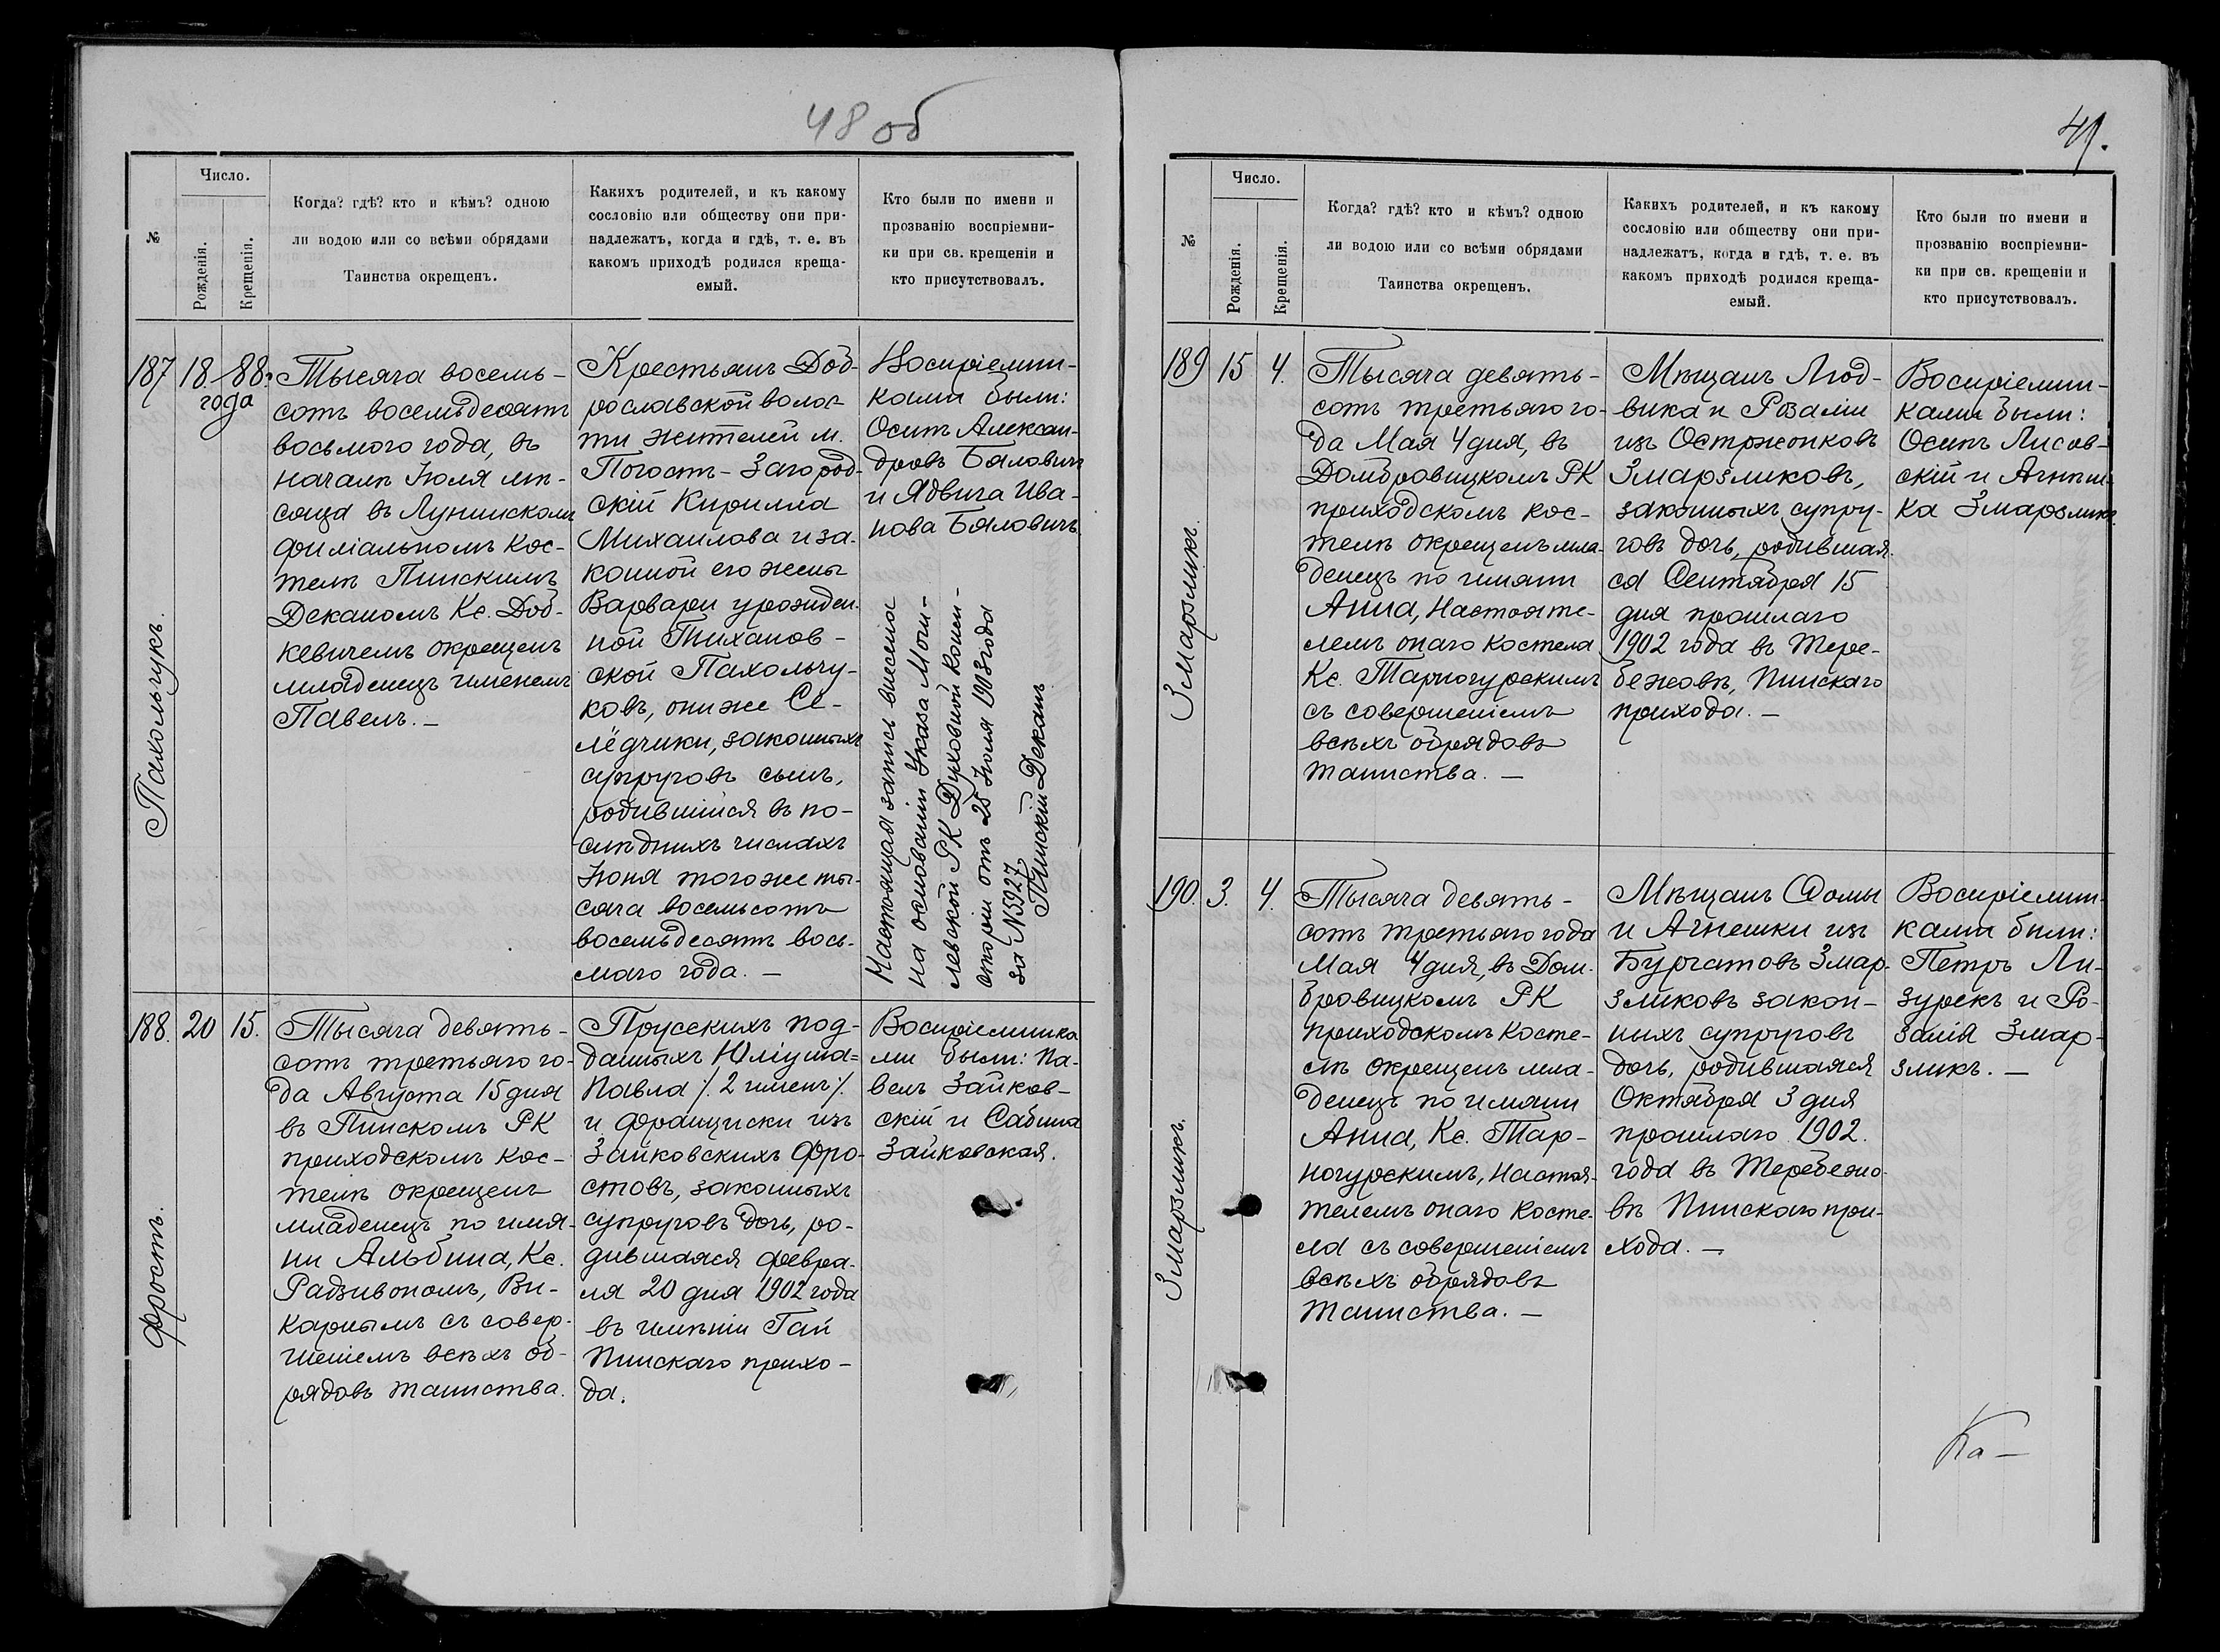 48 об
№
Число.
Рожденія.
Крещенія.
Когда? гдѣ? кто и кѣмъ? одною
ли водою или со всѣми обрядами
Таинства окрещенъ.
Какихъ родителей, и къ какому
сословію или обществу они при-
надлежатъ, когда и гдѣ, т. е. въ
какомъ приходѣ родился креща-
емый.
Кто были по имени и
прозванію воспріемни-
ки при св. крещеніи и
кто присутствовалъ.
187
18 88.
года
Пахольчукъ.
Тысяча восемь-
сотъ восемьдесятъ
восьмого года, въ
началѣ Іюля мѣ-
сяца въ Лунинскомъ
филіальномъ кос-
телѣ Пинскимъ
Деканомъ Кс. Доб-
кевичемъ окрещенъ
младенецъ именемъ
Павелъ. —
Крестьянъ Доб-
рославской волос-
ти жителей м.
Погостъ-Загород-
скій Кирилла
Михаилова и за-
конной его жены
Варвары урожден-
ной Тиханов-
ской Пахольчу-
ковъ, они же Се-
лёдчики, законныхъ
супруговъ сынъ,
родившійся въ по-
слѣднихъ числахъ
Іюня того же ты-
сяча восемьсотъ
восемьдесятъ вось-
маго года. —
Воспріемни-
ками были:
Осипъ Алексан-
дровъ Бяловичъ
и Ядвига Ива-
нова Бяловичъ.
Настоящая запись внесена
на основаніи Указа Моги-
левской РК Духовной Конси-
сторіи отъ 28 Іюля 1903 года
за №5927
Пинскій Деканъ
188.
20
15.
Фростъ.
Тысяча девять-
сотъ третьяго го-
да Августа 15 дня
въ Пинскомъ РК
приходскомъ кос-
телѣ окрещенъ
младенецъ по имя-
ни Альбина, Кс.
Радзивономъ, Ви-
карнымъ съ совер-
шеніемъ всѣхъ об-
рядовъ таинства.
Прусскихъ под-
данныхъ Юліуша=
Павла /. 2 именъ ./
и Францишки изъ
Зайковскихъ Фро-
стовъ, законныхъ
супруговъ дочь, ро-
дившаяся Февра-
ля 20 дня 1902 года
въ имѣніи Гай
Пинскаго прихо-
да.
Воспріемника
ми были: Па-
велъ Зайков-
скій и Сабина
Зайковская.
49.
№
Число.
Рожденія.
Крещенія.
Когда? гдѣ? кто и кѣмъ? одною
ли водою или со всѣми обрядами
Таинства окрещенъ.
Какихъ родителей, и къ какому
сословію или обществу они при-
надлежатъ, когда и гдѣ, т. е. въ
какомъ приходѣ родился креща-
емый.
Кто были по имени и
прозванію воспріемни-
ки при св. крещеніи и
кто присутствовалъ.
189
15
4.
Змарзликъ.
Тысяча девять-
сотъ третьяго го-
да Мая 4 дня, въ
Домбровицкомъ РК
приходскомъ кос-
телѣ окрещенъ мла-
денецъ по имяни
Анна, Настояте-
лемъ онаго костела
Кс. Тарногурскимъ
съ совершеніемъ
всѣхъ обрядовъ
таинства. —
Мѣщанъ Люд-
вика и Розаліи
изъ Остржонковъ
Змарзликовъ,
законныхъ супру-
говъ дочь, родившая-
ся Сентября 15
дня прошлаго
1902 года въ Тере-
бежовѣ, Пинскаго
прихода. —
Воспріемни-
ками были:
Осипъ Лисов-
скій и Агнѣш-
ка Змарзликъ.
190.
3.
4.
Змарзликъ.
Тысяча девять-
сотъ третьяго года
Мая 4 дня, въ Дом-
бровицкомъ РК
приходскомъ косте-
лѣ окрещенъ мла-
денецъ по имяни
Анна, Кс. Тар-
ногурскимъ, Настоя-
телемъ онаго косте-
ла съ совершеніемъ
всѣхъ обрядовъ
таинства. —
Мѣщанъ Ѳомы
и Агнешки изъ
Бургатовъ Змар-
зликовъ закон-
ныхъ супруговъ
дочь, родившаяся
Октября 3 дня
прошлаго 1902.
года въ Теребежо-
вѣ Пинскаго при-
хода. —
Воспріемни-
ками были:
Петръ Ли-
зурекъ и Ро-
залія Змар-
зликъ. —
Ка —